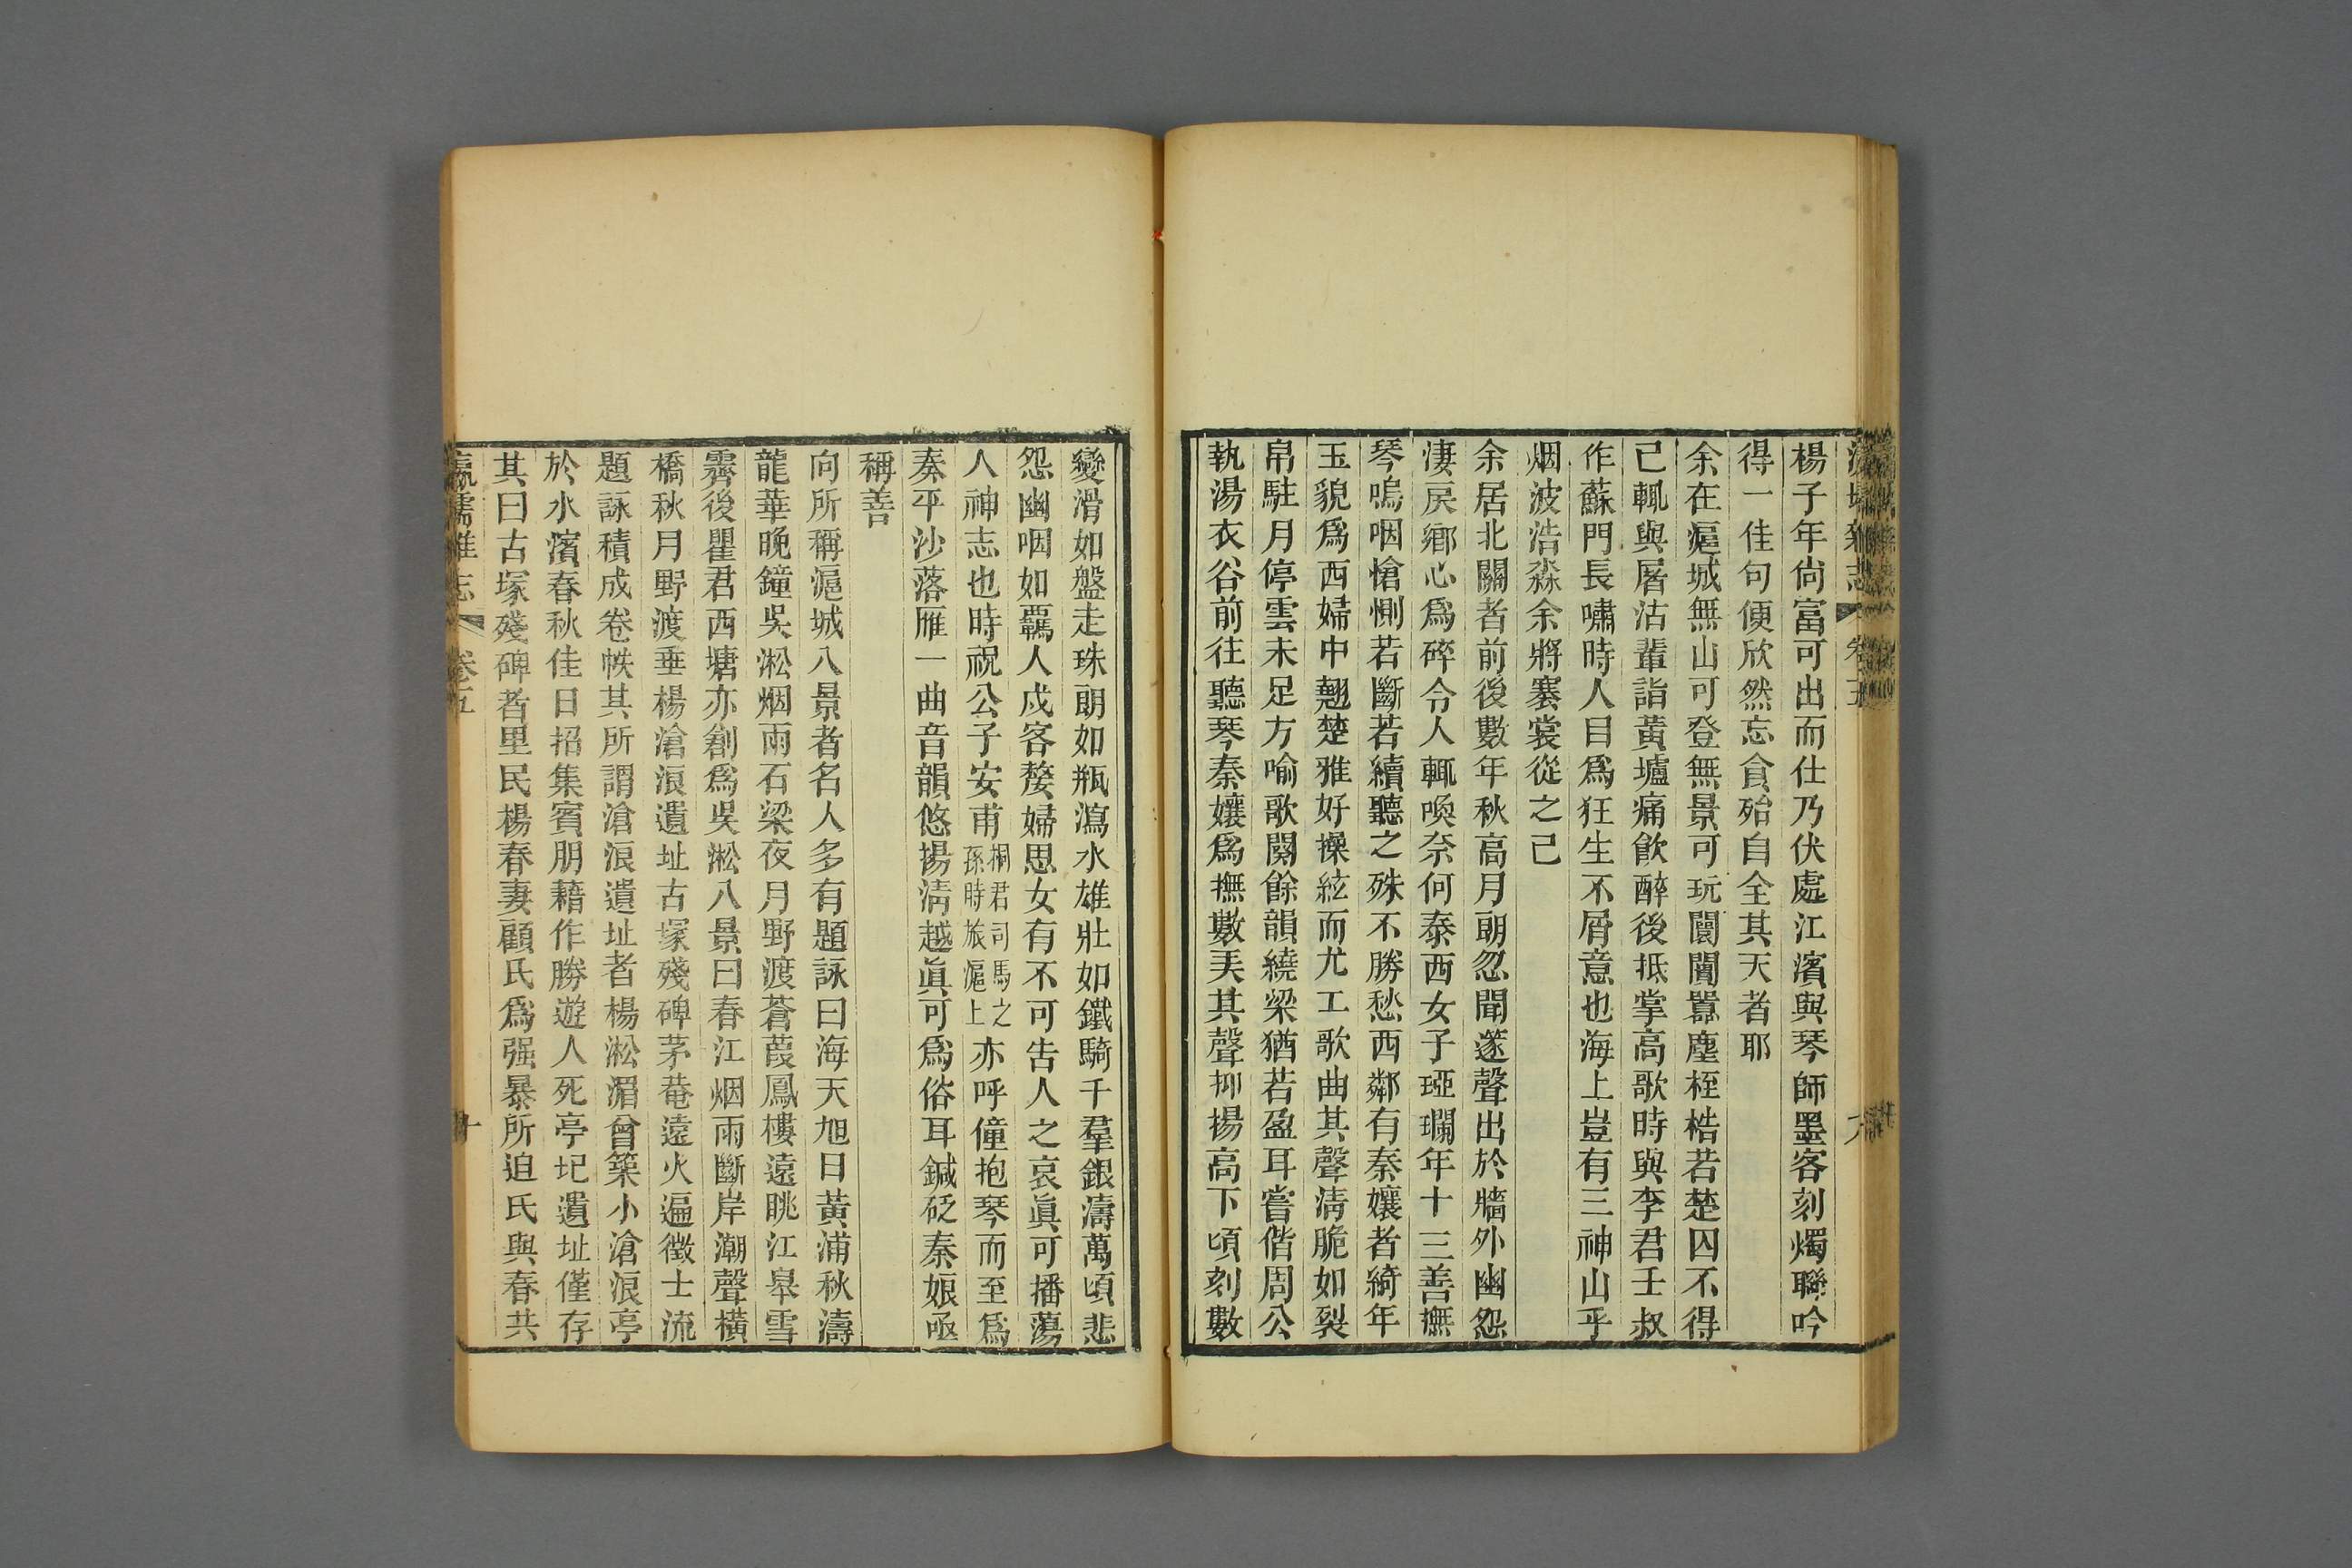 瀛壖雜志 卷五
楊子年尙富可出而仕乃伏處江濱與琴師墨客刻燭聯吟
得一佳句便欣然忘食殆自全其天者耶
余在滬城無山可登無景可玩闤闠囂塵桎梏若楚囚不得
已輒與屠沽輩詣黃壚痛飮醉後抵掌高歌時與李君壬叔
作蘇門長嘯時人目爲狂生不屑意也海上豈有三神山乎
烟波浩淼余將褰裳從之已
余居北關者前後數年秋高月朗忽聞邃聲出於牆外幽怨
淒戾鄉心爲碎令人輒喚奈何泰西女子瑌瓓年十三善撫
琴嗚咽愴惻若斷若續聽之殊不勝愁西鄰有秦孃者綺年
玉貌爲西婦中翹楚雅好操絃而尤工歌曲其聲淸脆如裂
帛駐月停雲未足方喻歌闋餘韻繞梁猶若盈耳嘗偕周公
執湯衣谷前往聽琴秦孃爲撫數关其聲抑揚高下頃刻數
變滑如盤走珠朗如瓶瀉水雄壯如鐵騎千羣銀濤萬頃悲
怨幽咽如覊人戍客嫠婦思女有不可告人之哀眞可播蕩
人神志也時祝公子安甫桐君司馬之孫時旅滬上亦呼僮抱琴而至爲
奏平沙落雁一曲音韻悠揚淸越眞可爲俗耳鍼砭秦娘亟
稱善
向所稱滬城八景者名人多有題詠曰海天旭日黃浦秋濤
龍華晚鐘吳淞烟雨石梁夜月野渡蒼葭鳳樓遠眺江皋雪
霽後瞿君西塘亦創爲吳淞八景曰春江烟雨斷岸潮聲橫
橋秋月野渡垂楊滄浪遺址古塚殘碑茅菴遠火遍徵士流
題詠積成卷帙其所謂滄浪遺址者楊淞湄曾築小滄浪亭
於水濱春秋佳日招集賓朋藉作勝遊人死亭圮遺址僅存
其曰古塚殘碑者里民楊春妻顧氏爲强暴所迫氏與春共
瀛壖雜志 卷五 十